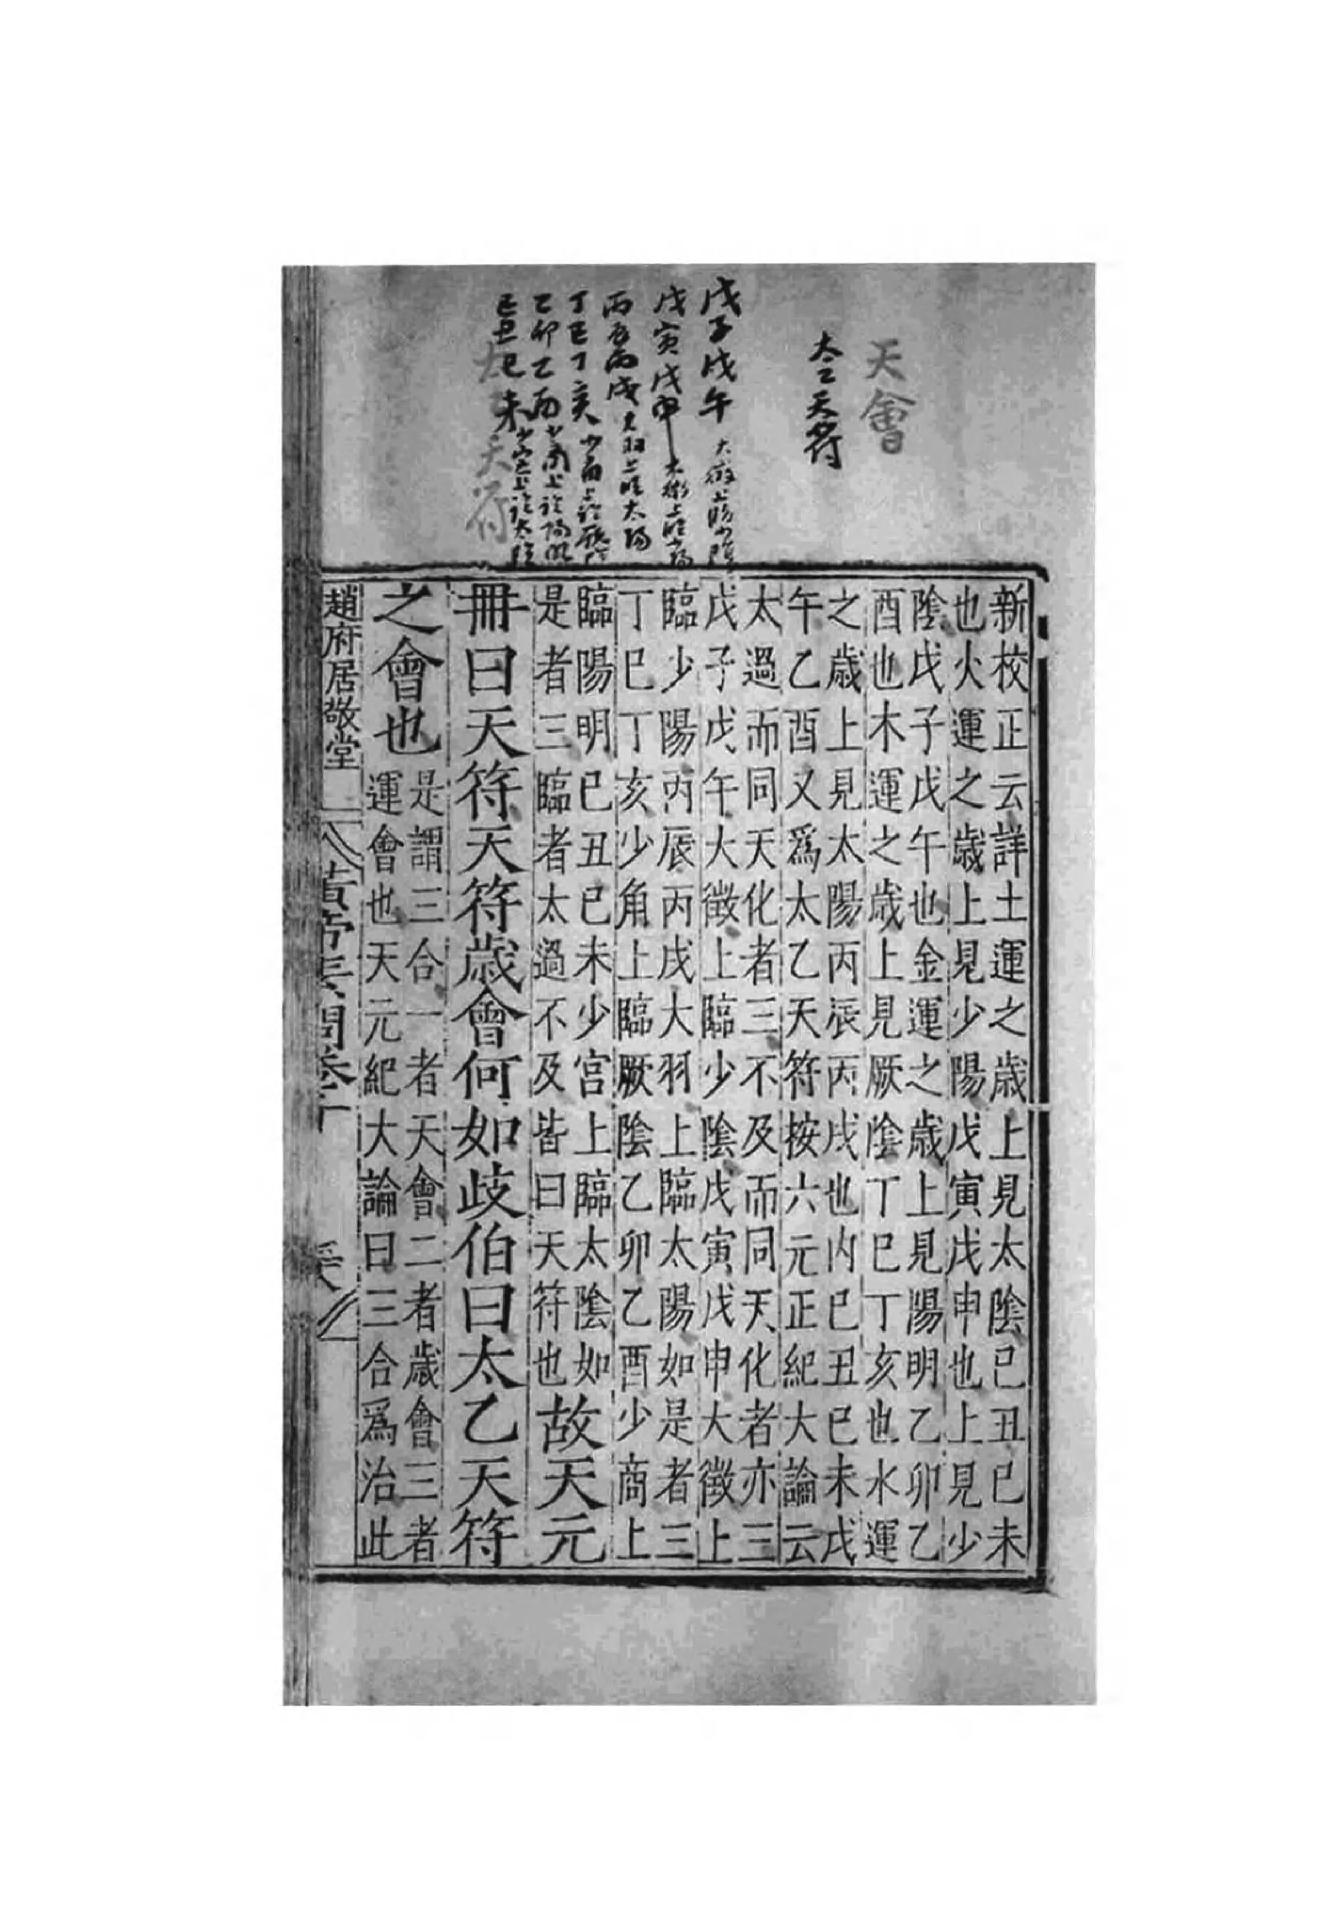 天會
太乙天符
戊子戊午 大徵上臨少陰
戊寅戊申 大徵上臨少陽
丙辰丙戌 大羽上臨太陽
丁巳丁亥 少角上臨厥陰
乙卯乙酉 少商上臨陽明
己丑己未 少宮上臨太陰
天符
新校正云詳土運之歲上見太陰己丑己未
也火運之歲上見少陽戊寅戊申也上見少
陰戊子戊午也金運之歲上見陽明乙卯乙
酉也木運之歲上見厥陰丁巳丁亥也水運
之歲上見太陽丙辰丙戌也內己丑己未戊
午乙酉又爲太乙天符按六元正紀大論云
太過而同天化者三不及而同天化者亦三
戊子戊午大徵上臨少陰戊寅戊申大徵上
臨少陽丙辰丙戌大羽上臨太陽如是者三
丁巳丁亥少角上臨厥陰乙卯乙酉少商上
臨陽明己丑己未少宮上臨太陰如
是者三臨者太過不及皆曰天符也
故天元
冊曰天符天符歲會何如歧伯曰太乙天符
之會也
是謂三合一者天會二者歲會三者
運會也天元紀大論曰三合爲治此
趙府居敬堂
黃帝素問卷十